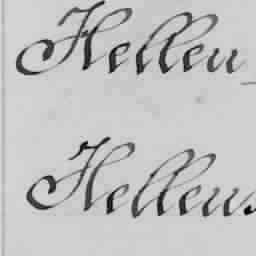 Hellen
Hellens